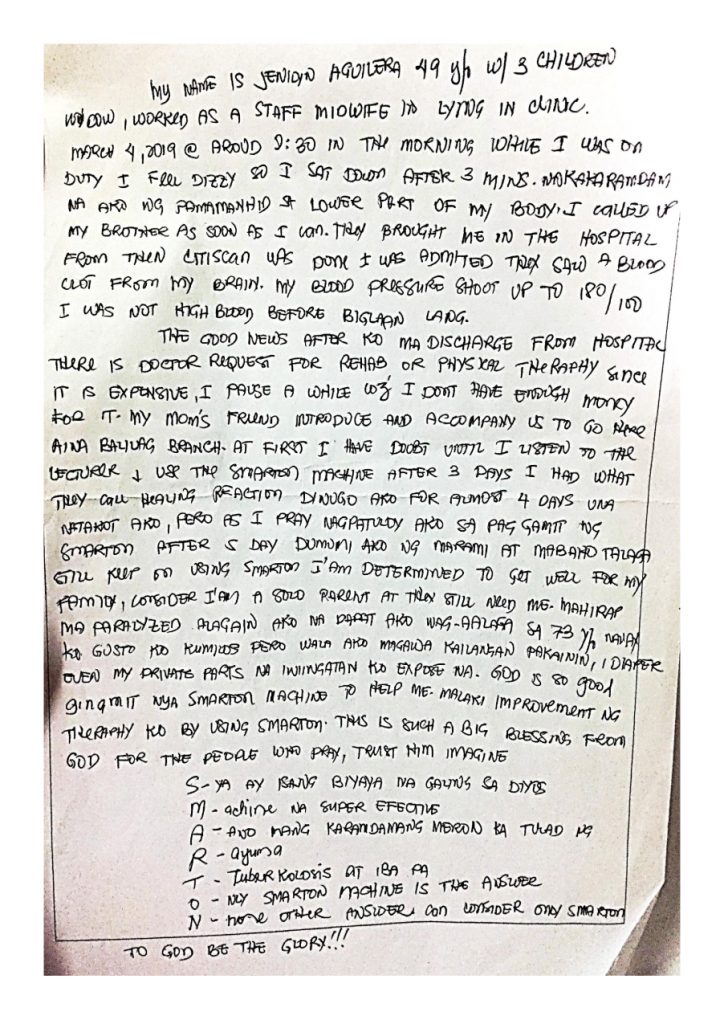 MY NAME IS JENIDYN AGUILERA 49 y/o W/ 3 CHILDREN
WIDOW, WORKED AS A STAFF MIDWIFE IN LYING IN CLINIC.
MARCH 4, 2019 @ AROUD 9:30 IN THE MORNING WHILE I WAS ON
DUTY I FEEL DIZZY SO I SAT DOWN AFTER 3 MINS. NAKAKARAMDAM
NA AKO NG PAMAMANHID SA LOWER PART OF MY BODY. I CALLED UP
MY BROTHER AS SOON AS I CAN. THEY BROUGHT ME IN THE HOSPITAL
FROM THEN CITISCAN WAS DONE I WAS ADMITED THEY SAW A BLOOD
CLOT FROM MY BRAIN. MY BLOOD PRESSURE SHOOT UP TO 180/100
I WAS NOT HIGH BLOOD BEFORE BIGLAAN LANG.
THE GOOD NEWS AFTER KO MA DISCHARGE FROM HOSPITAL
THERE IS DOCTOR REQUEST FOR REHAB OR PHYSICAL THERAPHY SINCE
IT IS EXPENSIVE, I PAUSE A WHILE COZ I DONT HAVE ENOUGH MONEY
FOR IT. MY MOM'S FRIEND INTRODUCE AND ACCOMPANY US TO GO HERE
AINA BALIUAG BRANCH. AT FIRST I HAVE DOUBT UNTIL I LISTEN TO THE
LECTURER & USE THE SMARTON MACHINE AFTER 3 DAYS I HAD WHAT
THEY CALL HEALING REACTION DINUGO AKO FOR ALMOST 4 DAYS UNA
NATAKOT AKO, PERO AS I PRAY NAGPATULOY AKO SA PAG GAMIT NG
SMARTON AFTER 5 DAY DUMUMI AKO NG MARAMI AT MABAHO TALAGA
STILL KEEP ON USING SMARTON I'AM DETERMINED TO GET WELL FOR MY
FAMILY, CONSIDER I'AM A SOLO PARENT AT THEY STILL NEED ME. MAHIRAP
MA PARALYZED ALAGAIN AKO NA DAPAT AKO WAG-AALAGA SA 73 y/o NANAY
KO GUSTO KO KUMILOS PERO WALA AKO MAGAWA KAILANGAN PAKAININ, I DIAPER
EVEN MY PRIVATE PARTS NA INIINGATAN KO EXPOSE NA. GOD IS SO good
gingmit NYA SMARTON MACHINE TO HELP ME. MALAKI IMPROVEMENT NG
THERAPHY KO BY USING SMARTON. THIS IS SUCH A BIG BLESSING FROM
GOD FOR THE PEOPLE WHO PRAY, TRUST HIM IMAGINE
S-YA AY ISANG BIYAYA NA GALING SA DIYOS
M - achine NA SUPER EFECTIVE
A - ANO MANG KARAMDAMANG MERON KA TULAD NG
R - ayuma
T - TUBERKOLOSIS AT IBA PA
O - NLY SMARTON MACHINE IS THE ANSWER
N - none other ANSWER CAN CONSIDER ONLY SMARTON
TO GOD BE THE GLORY!!!